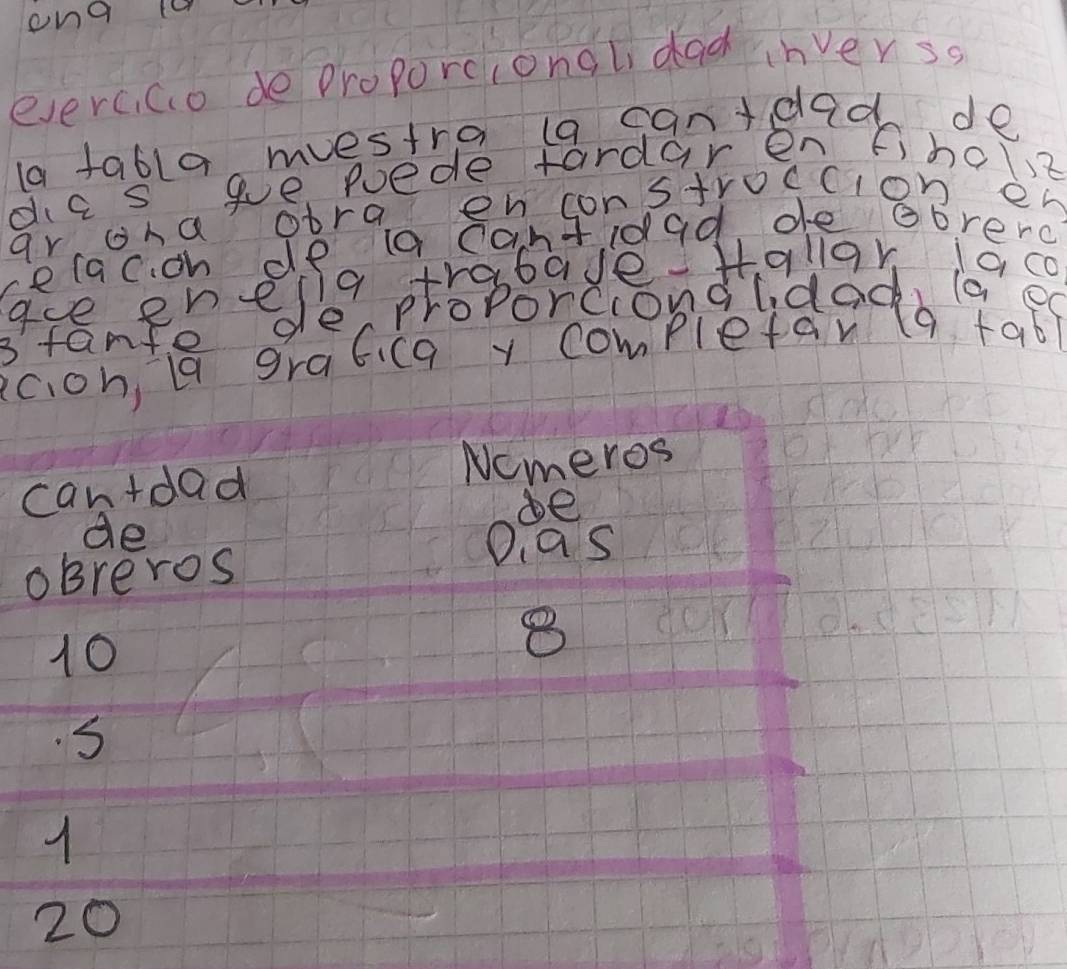 ona la
evercicio de proporcionalidad inversa
la tabla muestra la cantdad de
dias que puede tardar en finaliz
ar ona obra en construccion en
relacion de la cantidad de obrero
que en ella trabaje - Hallar la co
stante de proporcionalidad, la ec
acion, la grafica y completar la tabl
cantdad
de
oBreros
Nomeros
de
Dias
10 8
5
1
20